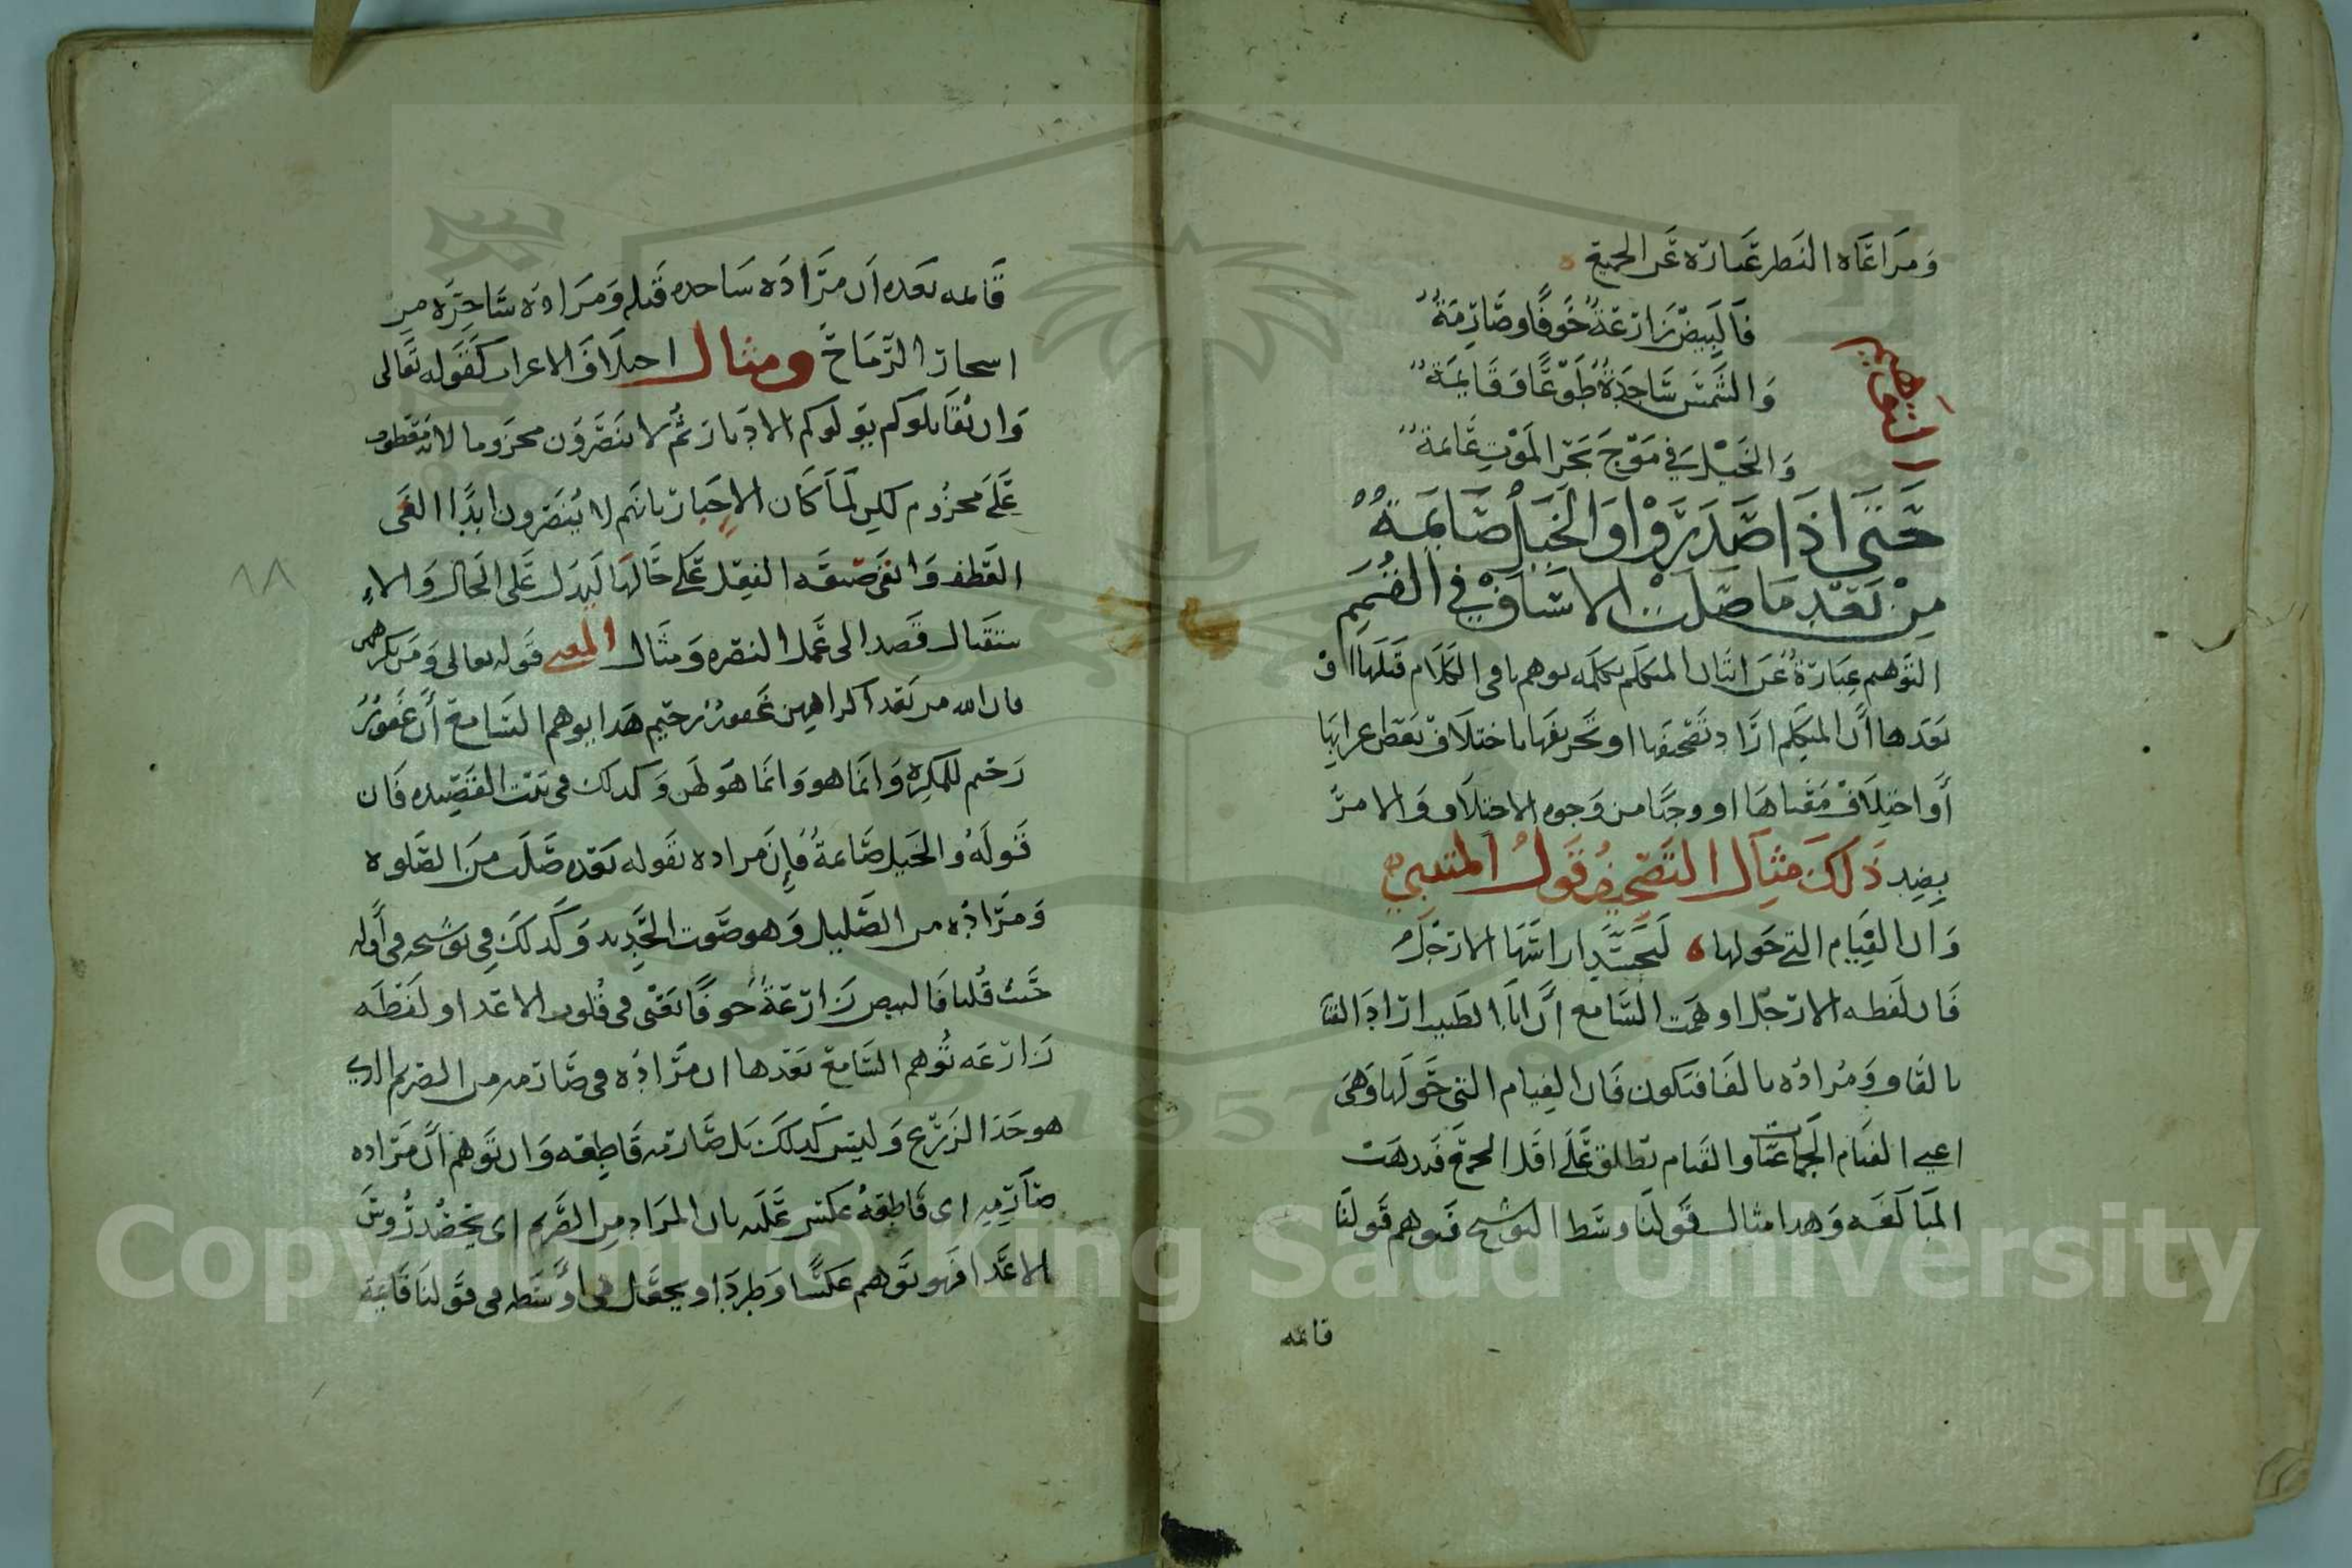 ومراعاه النطر عباره عن الجميع
فالبيض زارعة خوفا وصارمة
والشمس ساجدة طوعا وقايمة
والخيل في موج بحر الموت عايمة
التوهيم
حتى اذا صدروا والخيل صايمة
من بعد ما صلت الاسياف في القمم
التوهم عبارة عن اتيان المتكلم بكلمه يوهم باقي الكلام قبلها او
بعدها ان المتكلم اراد تصحيفها او تحريفها باختلاف بعض اعرابها
او اختلاف معناها او وجها من وجوه الاختلاف والامر
بضد ذلك مثال التصحيف قول المتنبي
وان الفيام التي حولها لتحسد ارجلها الارجل
فان لفظه الارجل اوهمت السامع ان ابا الطيب اراد القيا
بالقاف ومراده بالفا فتكون فان الفيام التي حولها وهي
اعني الفيام الجماعات والقيام يطلق على اقل الجمع فدهب
المبالغه وهدا مثال قولنا وسط التوشيح فتوهم قولنا
قايمه
قايمه بعده ان مراده ساجده قبله ومراده ساجره من
اسجار الرماح ومثال اختلاف الاعراب كقوله تعالى
وان يقاتلوكم يولوكم الادبار ثم لا ينصرون مجزوما لانه معطوف
على مجزوم لكن لما كان الاخبار بانهم لا ينصرون ابدا الغى
العطف وابقى صيغه الفعل على حالها ليدل على الحال والا
ستقبال قصدا الى عمل النصره ومثال المعنى قوله تعالى ومن يكرههن
فان الله من بعد اكراههن غفور رحيم هدا يوهم السامع ان غفور
رحيم للمكره وانما هو وانما هو لهن وكدلك في بيت القصيده فان
قوله والخيل صايمة فان مراده بقوله بعده صلت من الصلوه
ومراده من الصليل وهو صوت الحديد وكدلك في توشيحه في اوله
حيث قلنا فالبيض زارعة خوفا يعني في قلوب الاعدا ولفظه
زارعه توهم السامع بعدها ان مراده في صارمه من الصريم الدي
هو حد الزرع وليس كدلك بل صارمه قاطعه وان توهم ان مراده
صارمه اى قاطعة عكس عليه بان المراد من الصرم اى يحصد روس
الاعدا فهو توهم عكسا وطردا ويجعل في اوسطه في قولنا قايمة
٨٨
Copyright © King Saud University
1957